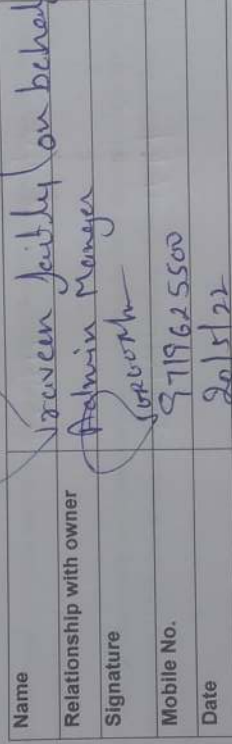 Name Praveen on behal
Relationship with owner Admin Manager
Signature
Mobile No. 9719625500
Date 20/5/22